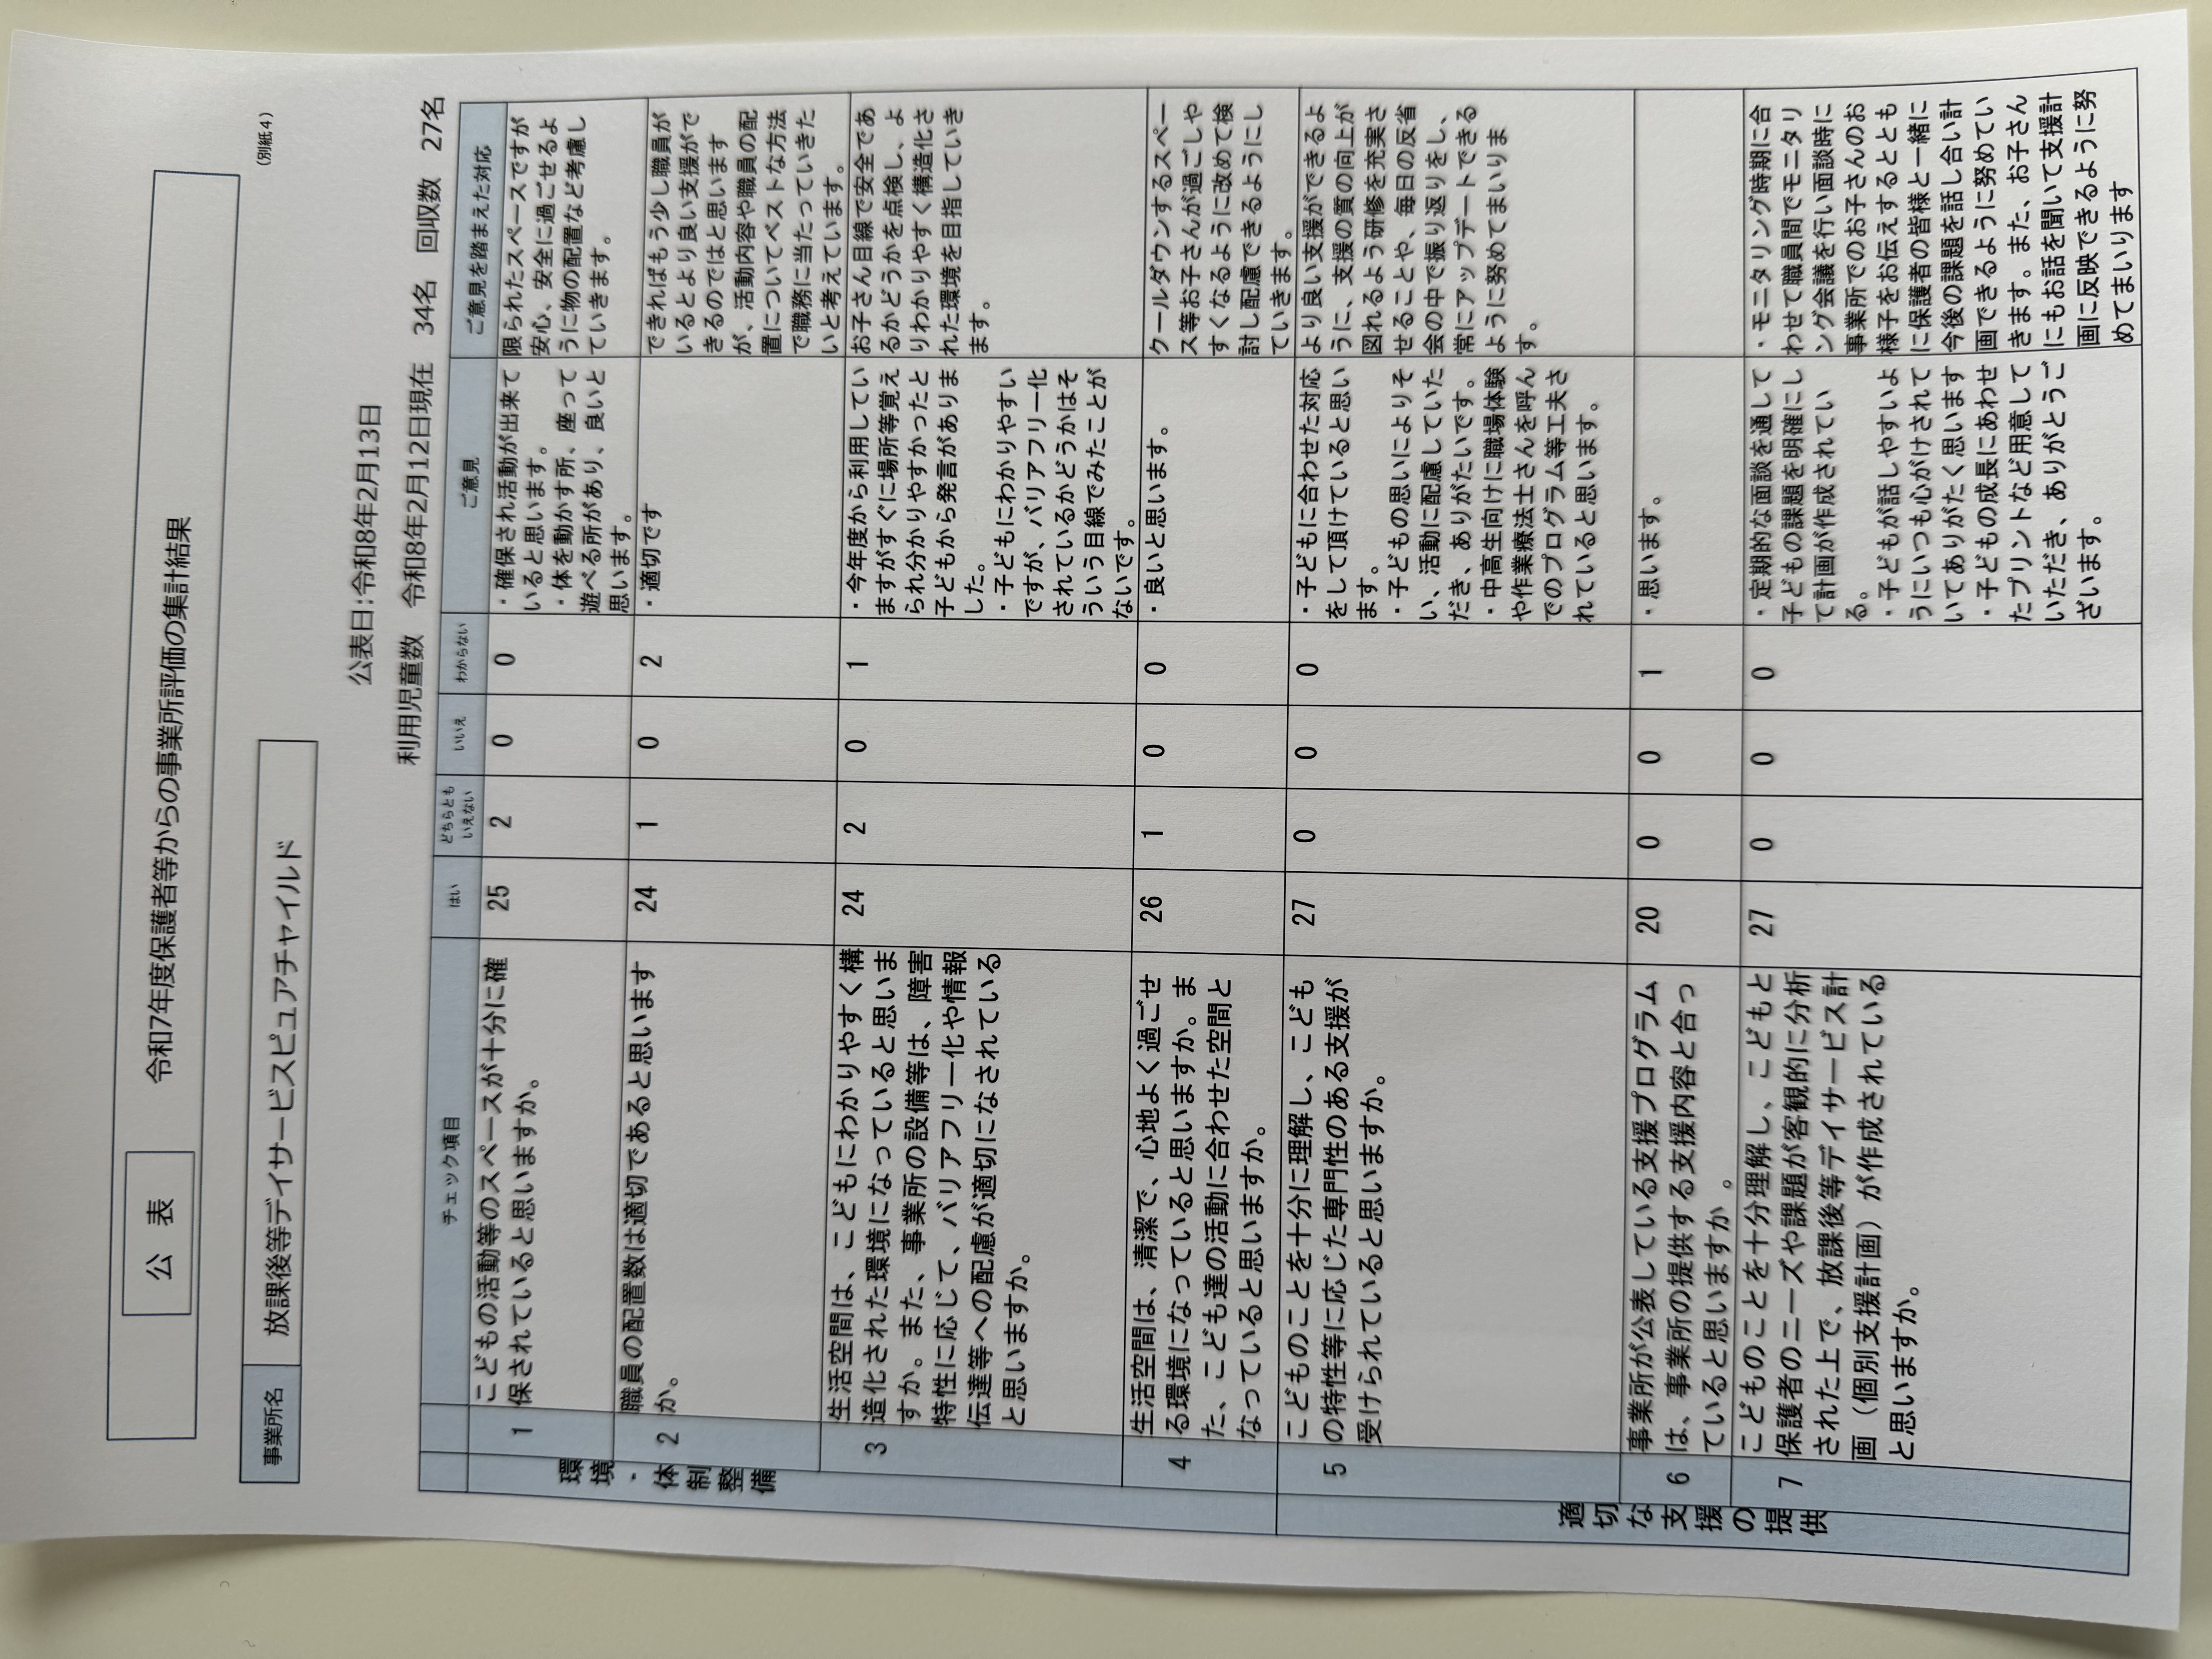 （別紙４）
公　表
令和7年度保護者等からの事業所評価の集計結果
事業所名
放課後等デイサービスピュアチャイルド
公表日:令和8年2月13日
利用児童数　令和8年2月12日現在　34名　回収数　27名
チェック項目
はい
どちらとも
いえない
いいえ
わからない
ご意見
ご意見を踏まえた対応
環境・体制整備
1
こどもの活動等のスペースが十分に確
保されていると思いますか。
25
2
0
0
・確保され活動が出来て
いると思います。
・体を動かす所、座って
遊べる所があり、良いと
思います。
限られたスペースですが
安心、安全に過ごせるよ
うに物の配置など考慮し
ていきます。
2
職員の配置数は適切であると思います
か。
24
1
0
2
・適切です
できればもう少し職員が
いるとより良い支援がで
きるのではと思います
が、活動内容や職員の配
置についてベストな方法
で職務に当たっていきた
いと考えています。
3
生活空間は、こどもにわかりやすく構
造化された環境になっていると思いま
すか。また、事業所の設備等は、障害
特性に応じて、バリアフリー化や情報
伝達等への配慮が適切になされている
と思いますか。
24
2
0
1
・今年度から利用してい
ますがすぐに場所等覚え
られ分かりやすかったと
子どもから発言がありま
した。
・子どもにわかりやすい
ですが、バリアフリー化
されているかどうかはそ
ういう目線でみたことが
ないです。
お子さん目線で安全であ
るかどうかを点検し、よ
りわかりやすく構造化さ
れた環境を目指していき
ます。
4
生活空間は、清潔で、心地よく過ごせ
る環境になっていると思いますか。ま
た、こども達の活動に合わせた空間と
なっていると思いますか。
26
1
0
0
・良いと思います。
クールダウンするスペー
ス等お子さんが過ごしや
すくなるように改めて検
討し配慮できるようにし
ていきます。
適切な支援の提供
5
こどものことを十分に理解し、こども
の特性等に応じた専門性のある支援が
受けられていると思いますか。
27
0
0
0
・子どもに合わせた対応
をして頂けていると思い
ます。
・子どもの思いによりそ
い、活動に配慮していた
だき、ありがたいです。
・中高生向けに職場体験
や作業療法士さんを呼ん
でのプログラム等工夫さ
れていると思います。
より良い支援ができるよ
うに、支援の質の向上が
図れるよう研修を充実さ
せることや、毎日の反省
会の中で振り返りをし、
常にアップデートできる
ように努めてまいりま
す。
6
事業所が公表している支援プログラム
は、事業所の提供する支援内容と合っ
ていると思いますか。
20
0
0
1
・思います。
7
こどものことを十分理解し、こどもと
保護者のニーズや課題が客観的に分析
された上で、放課後等デイサービス計
画（個別支援計画）が作成されている
と思いますか。
27
0
0
0
・定期的な面談を通して
子どもの課題を明確にし
て計画が作成されてい
る。
・子どもが話しやすいよ
うにいつも心がけされて
いてありがたく思います
・子どもの成長にあわせ
たプリントなど用意して
いただき、ありがとうご
ざいます。
・モニタリング時期に合
わせて職員間でモニタリ
ング会議を行い面談時に
事業所でのお子さんのお
様子をお伝えするととも
に保護者の皆様と一緒に
今後の課題を話し合い計
画できるように努めてい
きます。また、お子さん
にもお話を聞いて支援計
画に反映できるように努
めてまいります